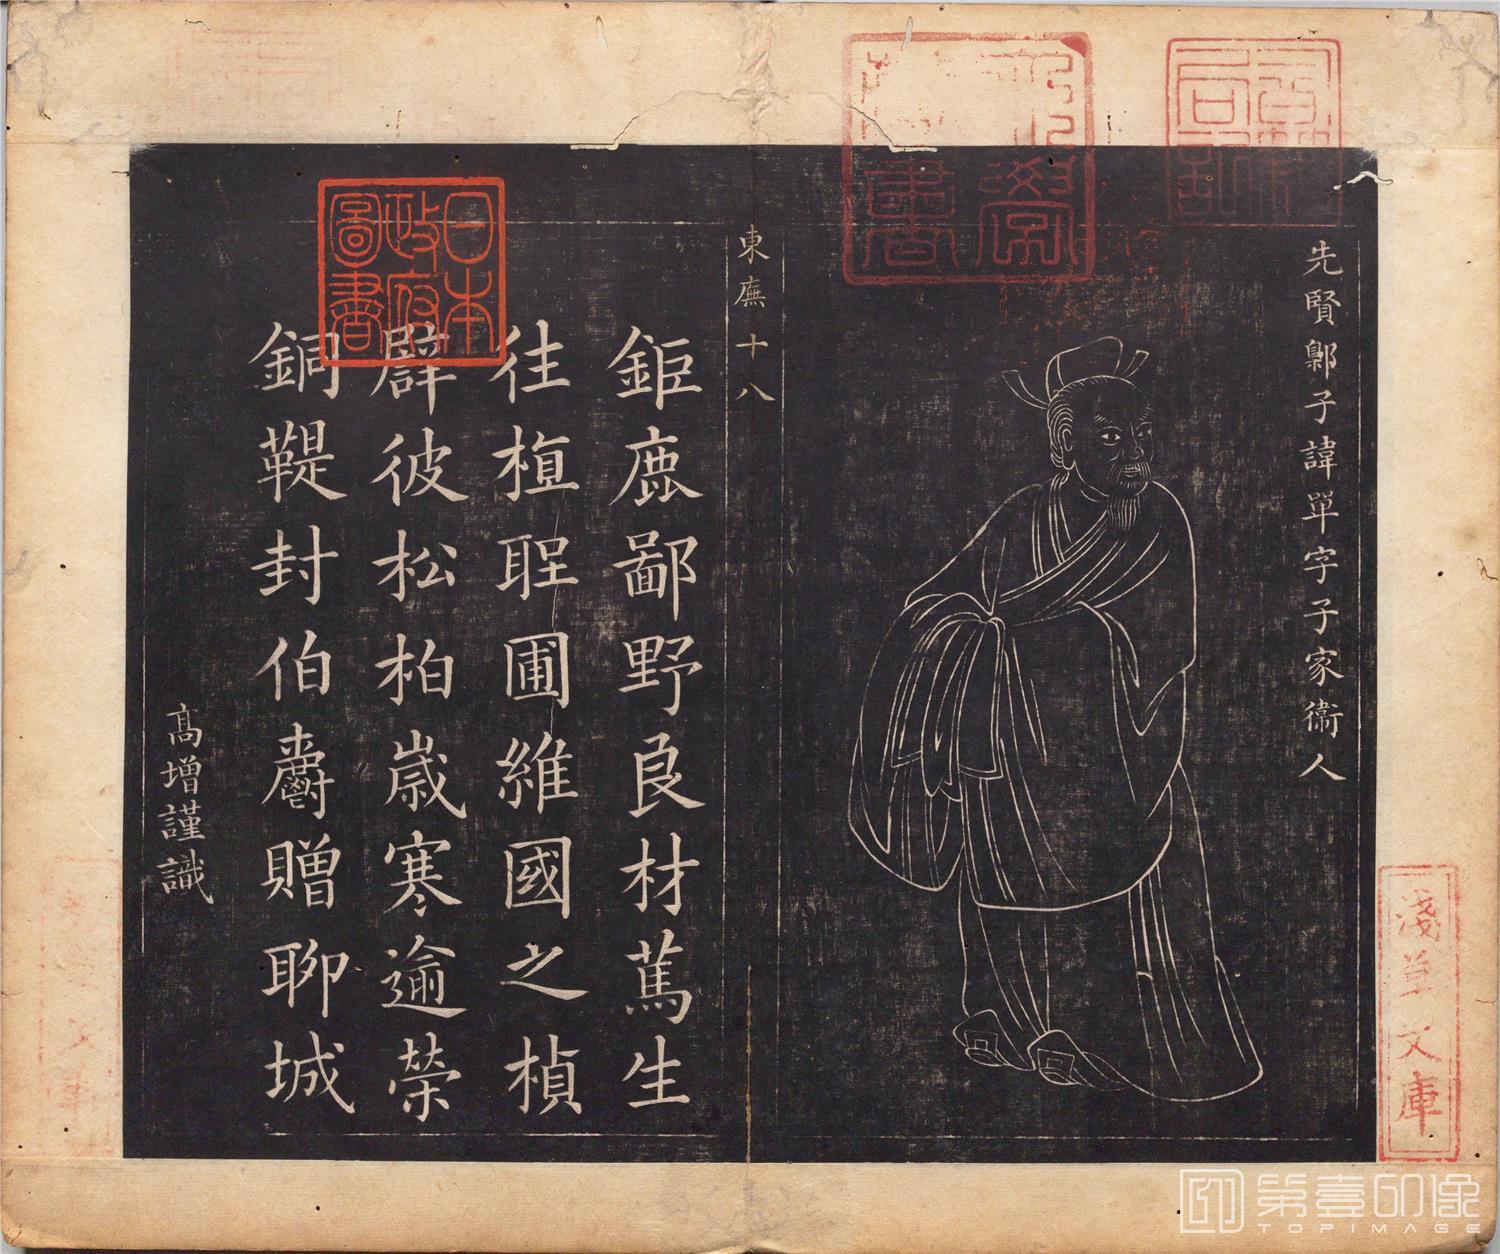 先賢鄡子諱單字子家衛人
東廡十八
鉅鹿鄙野良材蔦生
往植聖圃維國之楨
辟彼松柏歲寒逾榮
銅鞮封伯爵贈聊城
高增謹識
日本
政府
圖書
淺草文庫
第壹印像
TOPIMAGE